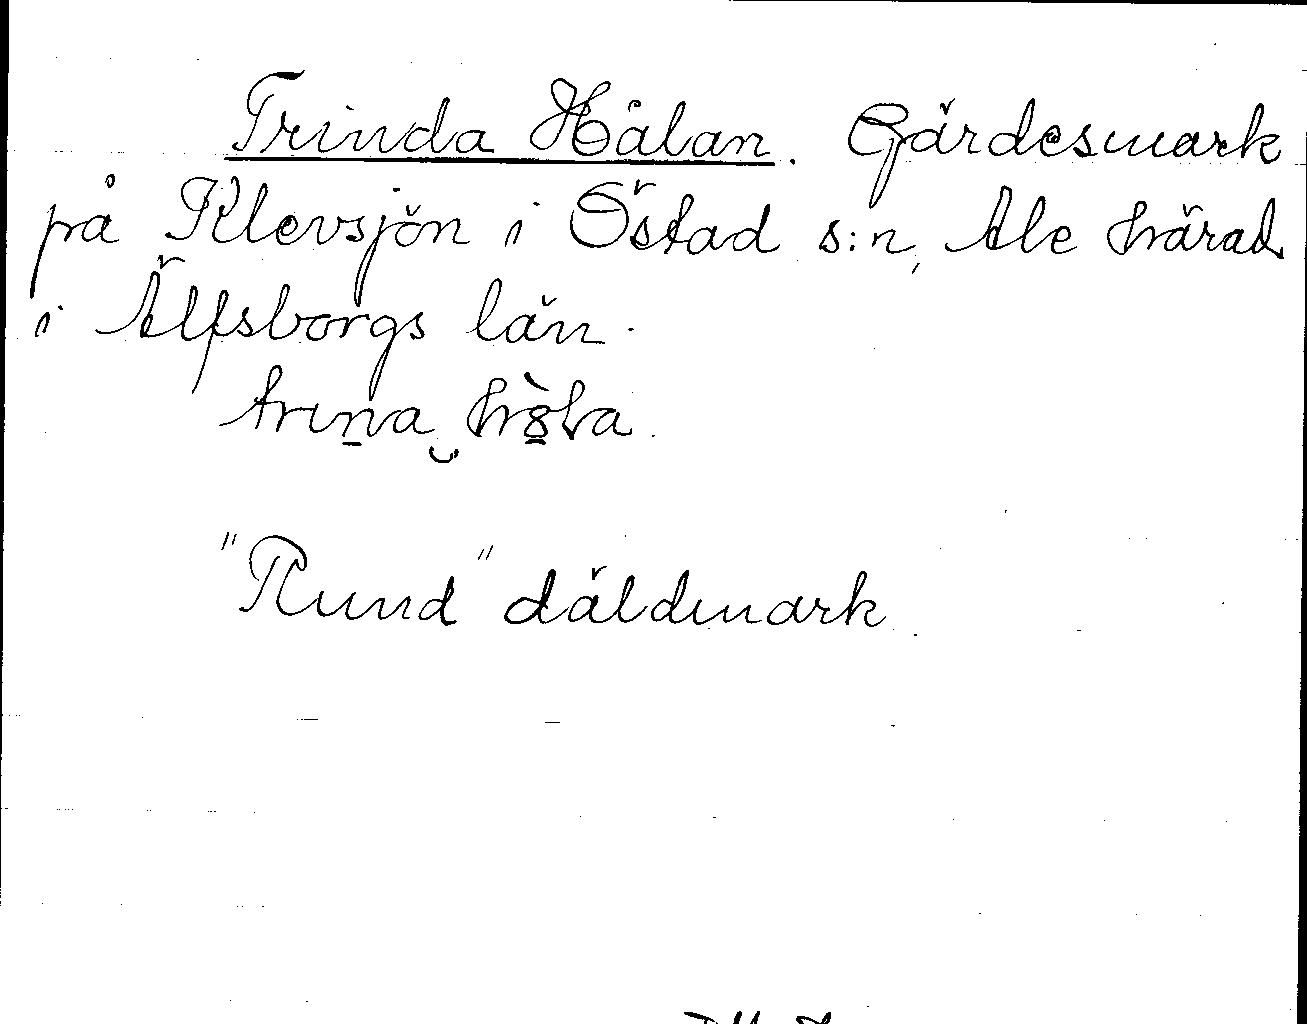 Trinda Hålan. Gärdesmark
på Klevsjön i Östad s:n, Ale härad
i Älfsborgs län.
trina hòla.
"Rund" däldmark.